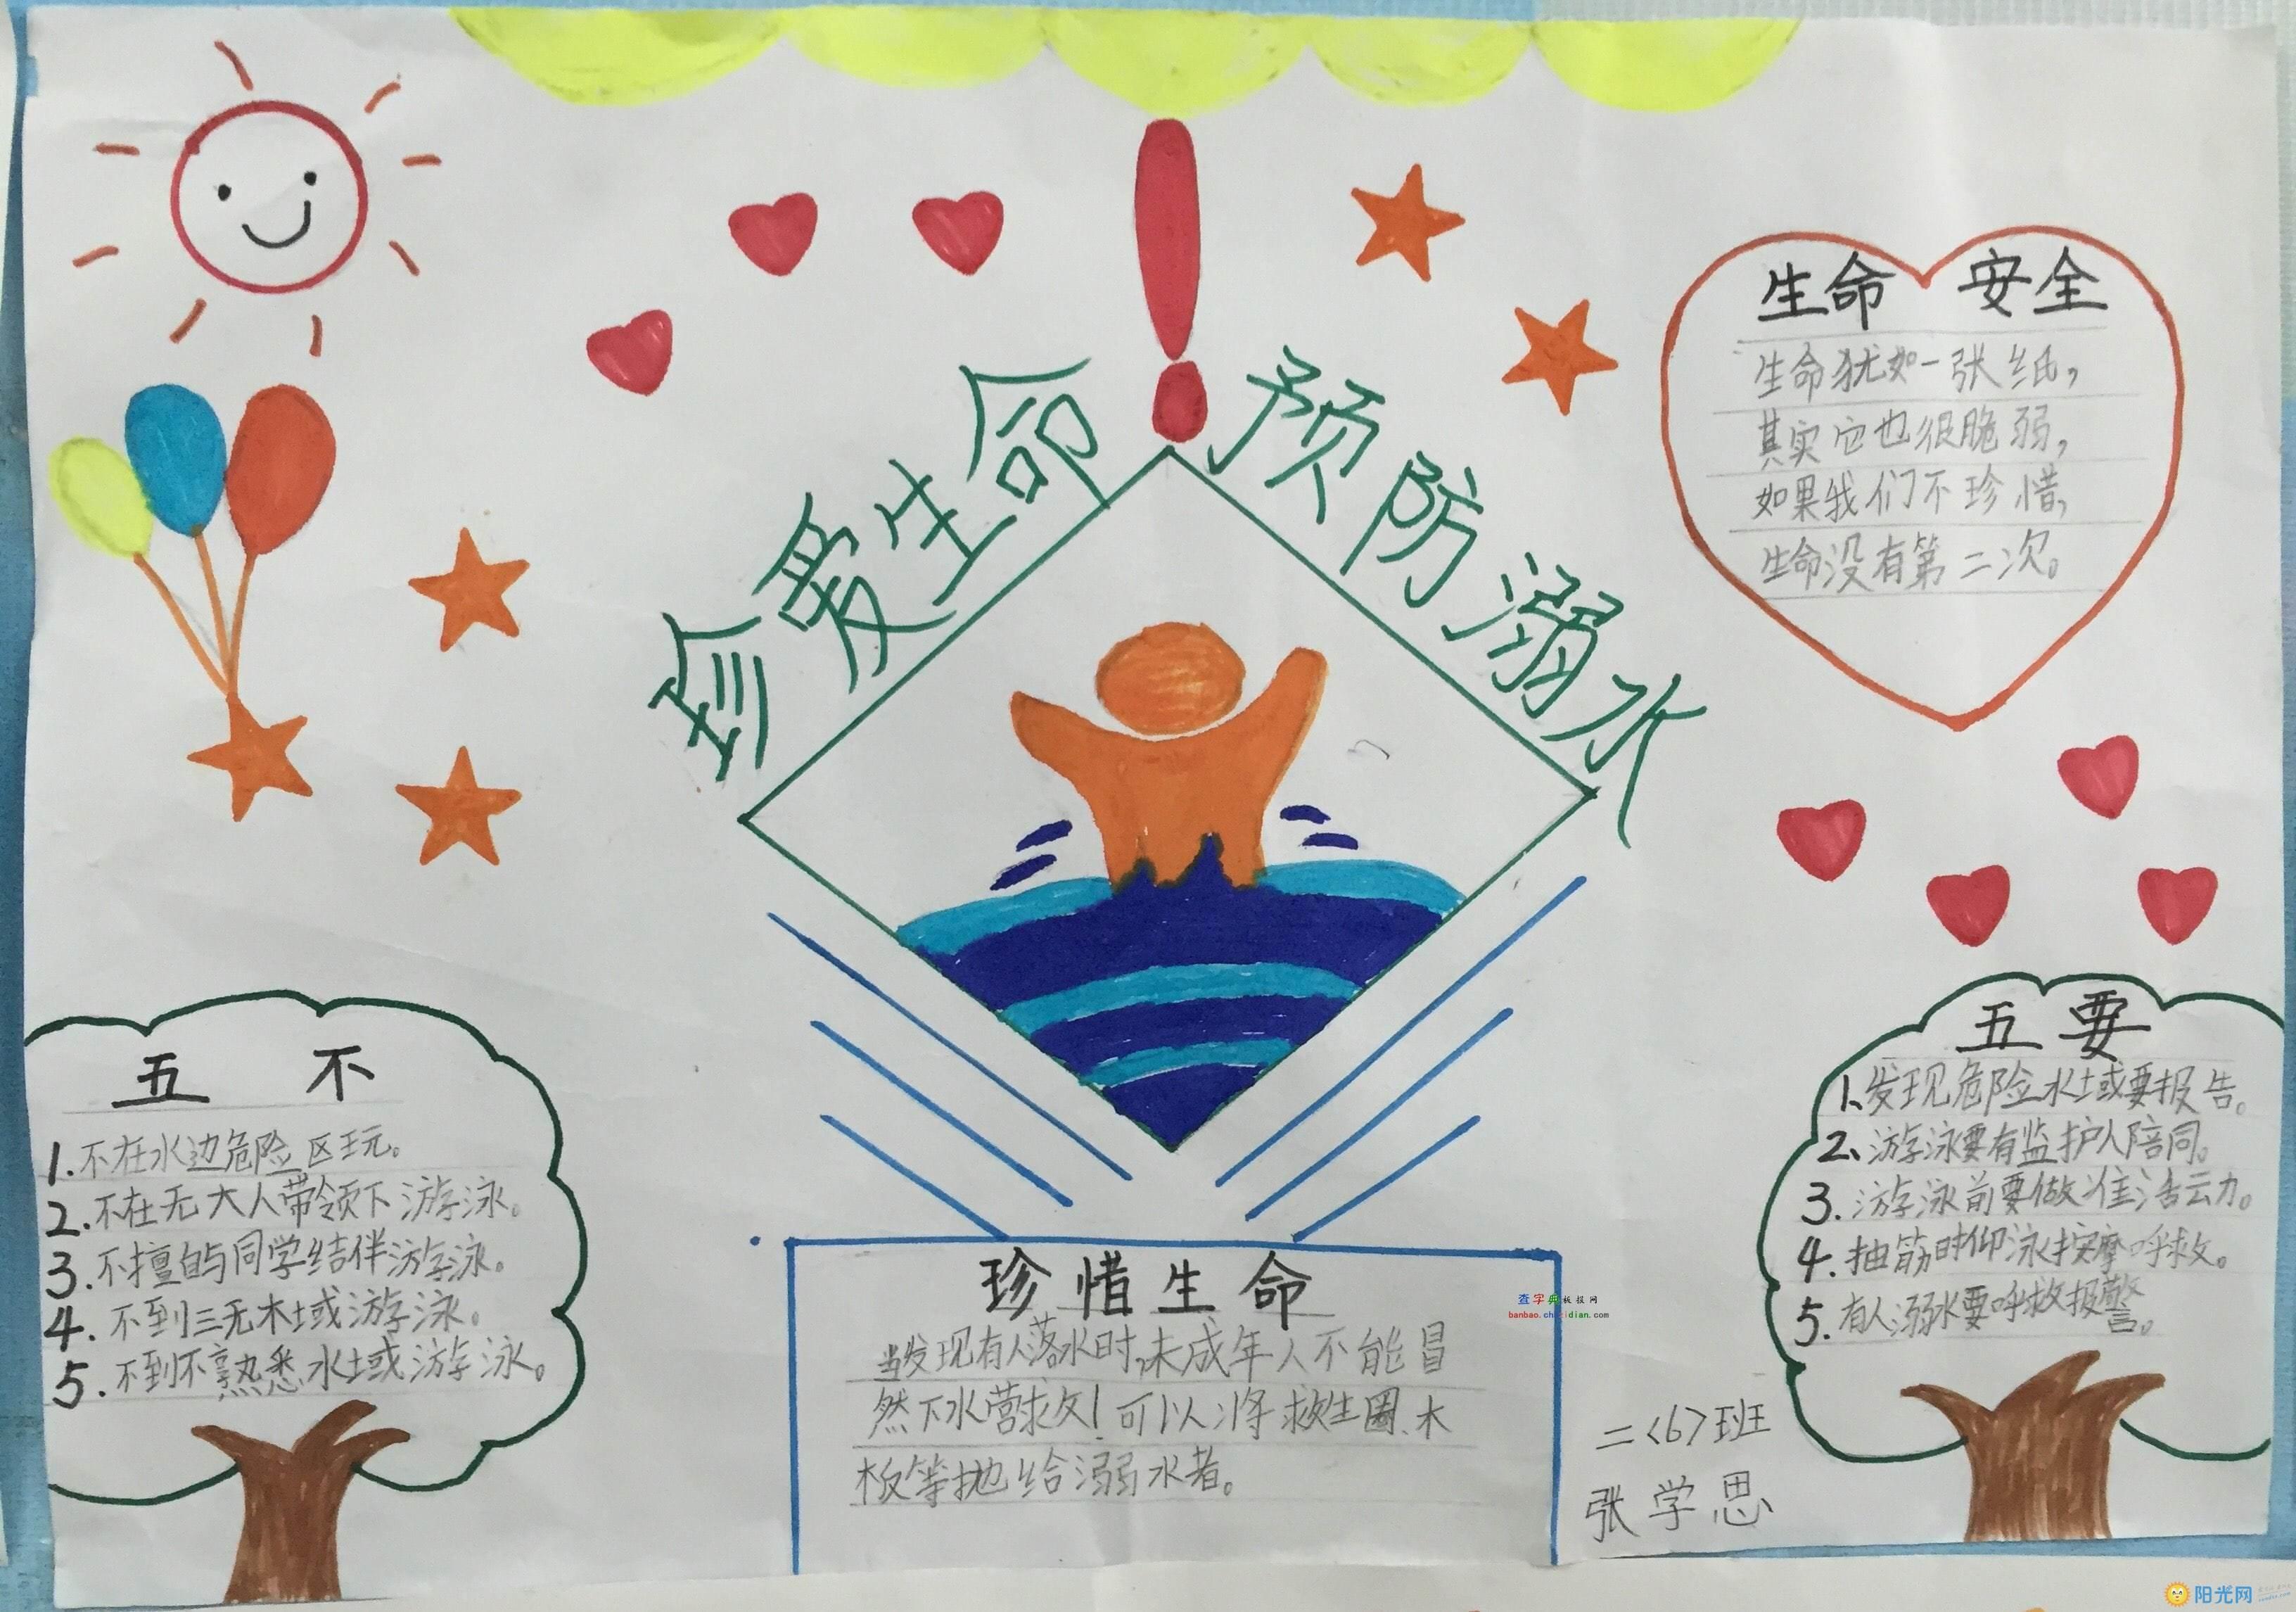 珍爱生命
！
预防溺水
生命 安全
生命犹如一张纸，
其实它也很脆弱，
如果我们不珍惜，
生命没有第二次。
五 不
1.不在水边危险区玩。
2.不在无大人带领下游泳。
3.不擅自与同学结伴游泳。
4.不到三无水域游泳。
5.不到不熟悉水域游泳。
五要
1、发现危险水域要报告。
2、游泳要有监护人陪同。
3.游泳前要做准活动。
4.抽筋时仰泳按摩呼救。
5.有人溺水要呼救报警。
珍惜生命
当发现有人落水时，未成年人不能冒
然下水营救！可以将救生圈、木
板等抛给溺水者。
二〈6〉班
张学思
查字典板报网
banbao.chazidian.com
阳光网